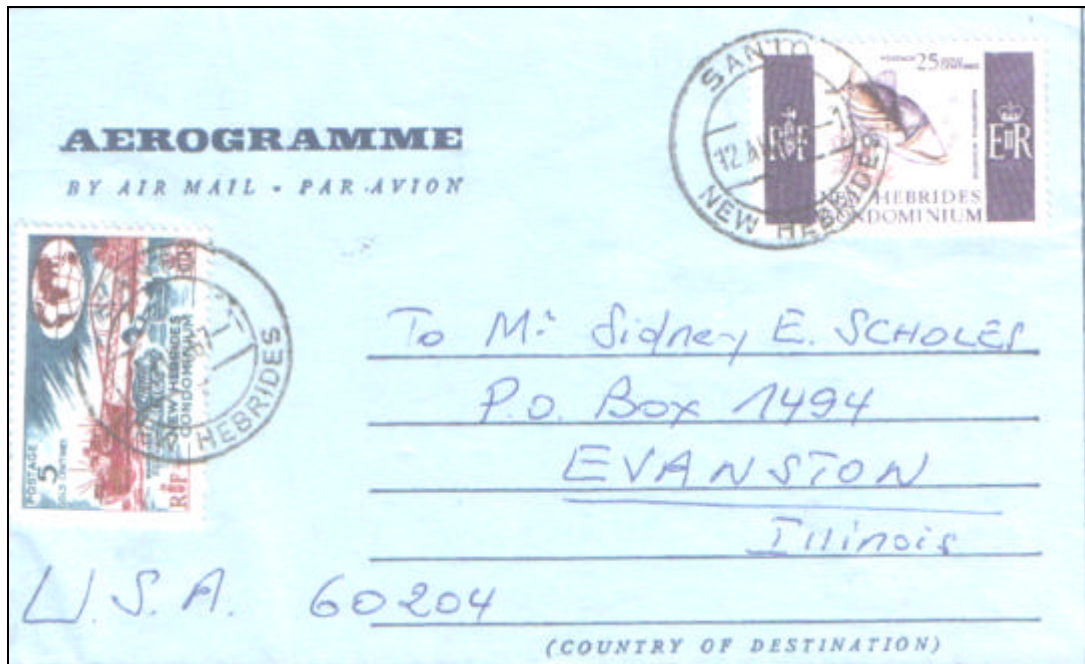 AEROGRAMME
BY AIR MAIL • PAR AVION
SANTO
NEW HEBRIDES
12
POSTAGE 25 GOLD CENTIMES
RF
EIIR
NEW HEBRIDES
CONDOMINIUM
POSTAGE
5
GOLD CENTIMES
NEW HEBRIDES
CONDOMINIUM
RF
HEBRIDES
To Mr Sidney E. SCHOLES
P.O. Box 1494
EVANSTON
Illinois
U.S.A. 60204
(COUNTRY OF DESTINATION)